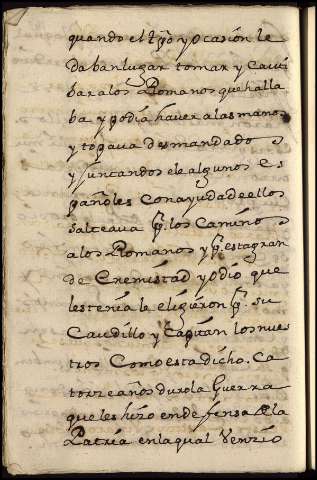 quando el tpo y ocasión le
daban lugar tomar y Cauti
bar a los Romanos que halla
ba y podia haver a las manos
y topava desmandados
y juntandosele algunos Es
pañoles con ayuda de ellos
salteava p. los Caminos
a los Romanos y p. esta gran
de Enemistad y odio que
les tenía le eligiéron p. su
Caudillo y Capitan los nues
tros Como esta dicho. Ca
torze años duro la Guerra
que les hizo en defensa de la
Patria en la qual Venzio